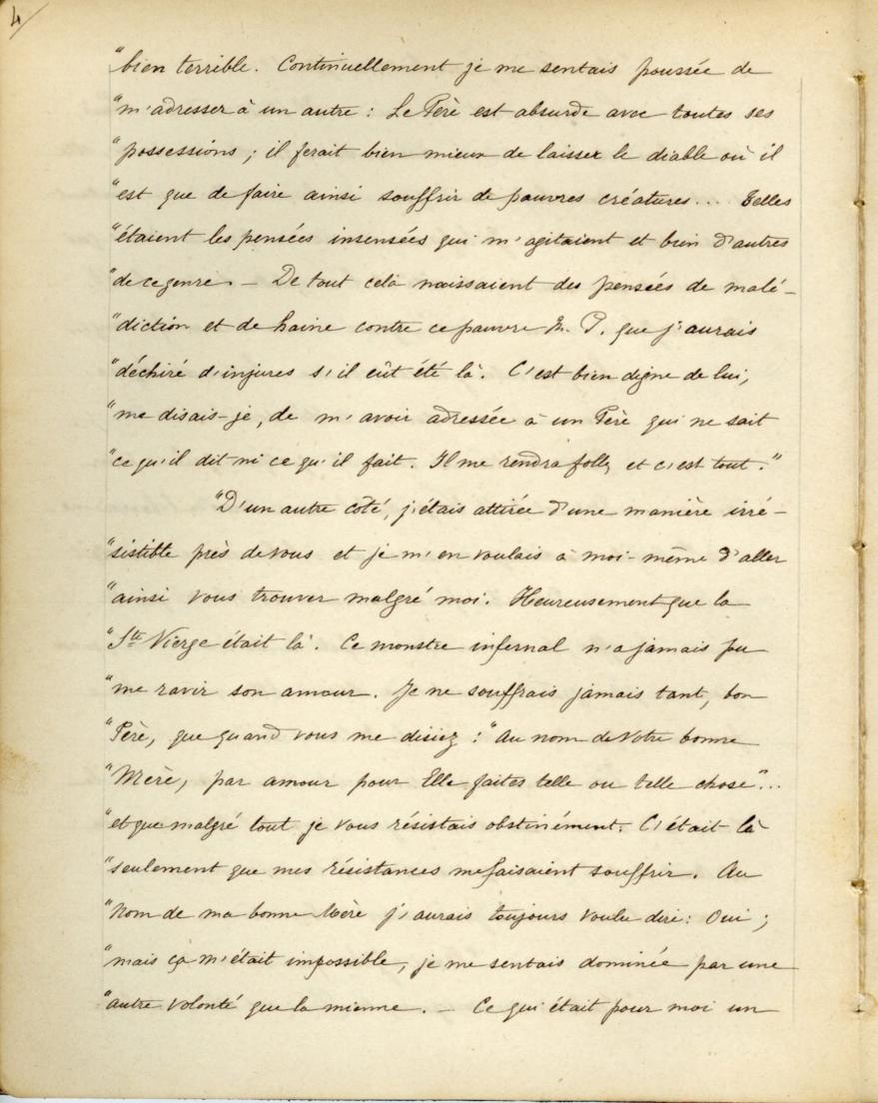 4
"bien terrible. Continuellement je me sentais poussée de
"m'adresser à un autre : Le Père est absurde avec toutes ses
"possessions ; il ferait bien mieux de laisser le diable où il
"est que de faire ainsi souffrir de pauvres créatures... Telles
"étaient les pensées insensées qui m'agitaient et bien d'autres
"de ce genre. — De tout cela naissaient des pensées de malé-
"diction et de haine contre ce pauvre P. que j'aurais
"déchiré d'injures s'il eût été là. C'est bien digne de lui,
"me disais-je, de m'avoir adressée à un Père qui ne sait
"ce qu'il dit ni ce qu'il fait. Il me rendra folle, et c'est tout."
"D'un autre côté, j'étais attirée d'une manière irré-
"sistible près de vous et je m'en voulais à moi-même d'aller
"ainsi vous trouver malgré moi. Heureusement que la
"Ste Vierge était là. Ce monstre infernal n'a jamais pu
"me ravir son amour. Je ne souffrais jamais tant, bon
"Père, que quand vous me disiez : "Au nom de votre bonne
"Mère, par amour pour Elle faites telle ou telle chose"...
"et que malgré tout je vous résistais obstinément. C'était là
"seulement que mes résistances me faisaient souffrir. Au
"nom de ma bonne Mère j'aurais toujours voulu dire : Oui ;
"mais ça m'était impossible, je me sentais dominée par une
"autre volonté que la mienne. — Ce qui était pour moi un